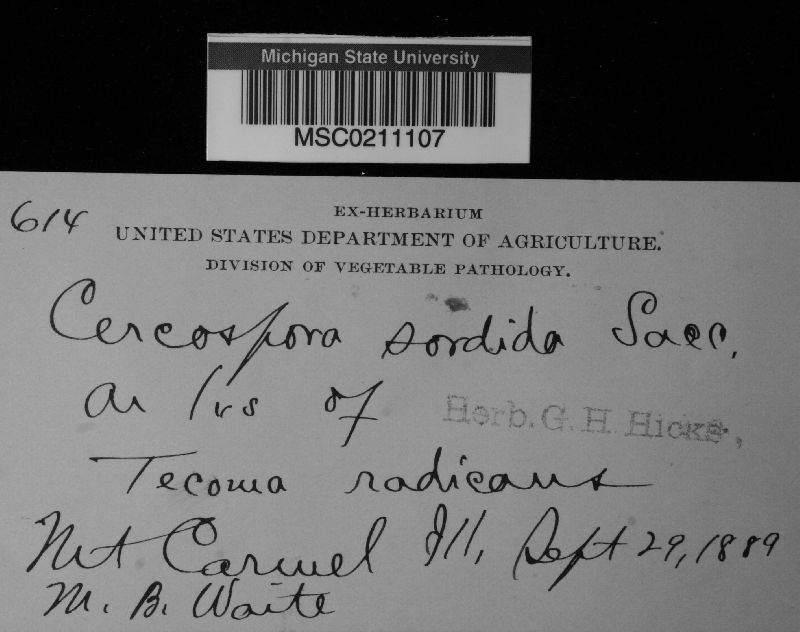 Michigan State University
MSC0211107
614
EX-HERBARIUM
UNITED STATES DEPARTMENT OF AGRICULTURE.
DIVISION OF VEGETABLE PATHOLOGY.
Cercospora sordida Sacc.
on lvs of
Herb. G. H. Hicks,
Tecoma radicans
Mt Carmel Ill, Sept 29, 1889
M. B. Waite